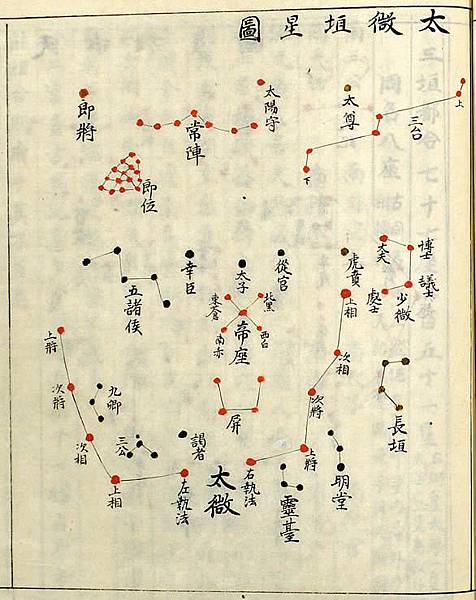 太微垣星圖
上
三台
下
太尊
太陽守
常陣
即將
即位
博士
議士
少微
處士
大夫
虎賁
從官
太子
幸臣
五諸侯
紫黑
東倉
帝座
西白
南赤
上相
次相
次將
上將
長垣
屏
明堂
靈臺
右執法
太微
謁者
左執法
九卿
三公
上將
次將
次相
上相